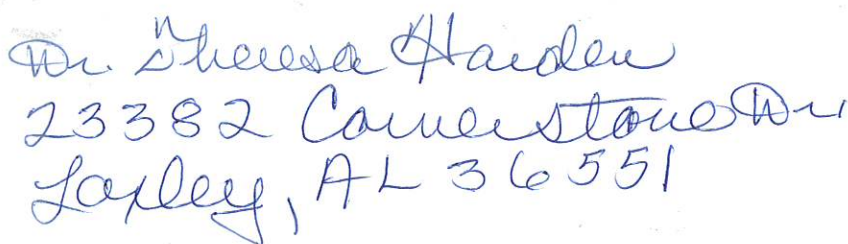 Dr. Theresa Harden
23382 Cornerstone Dr
Loxley, AL 36551